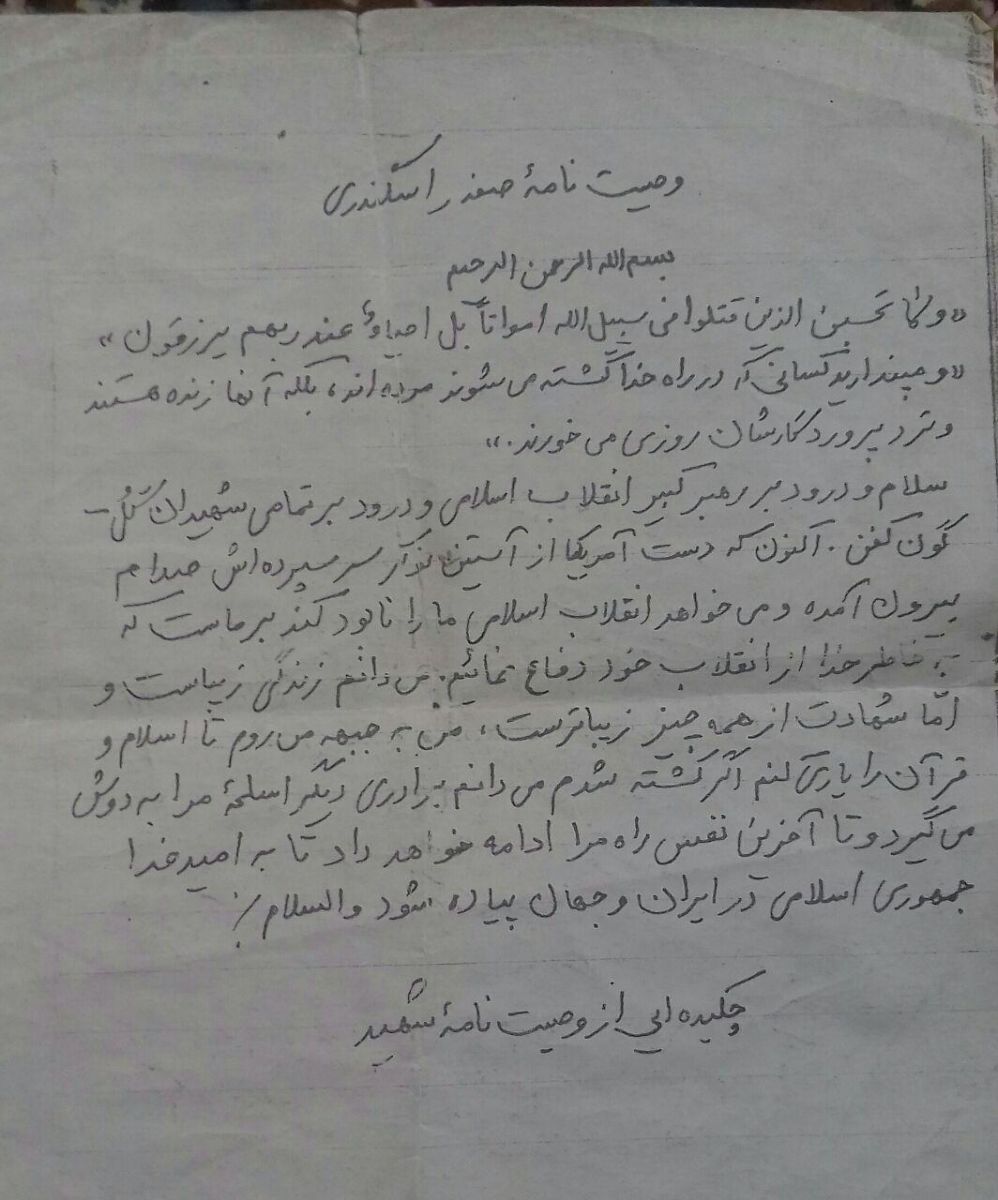 وصیت نامهٔ صفدر اسکندری
بسم الله الرحمن الرحیم
«ولا تحسبن الذین قتلوا فی سبیل الله امواتاً بل احیاءٌ عند ربهم یرزقون»
«و مپندارید کسانی که در راه خدا کشته می شوند مرده اند، بلکه آنها زنده هستند
و نزد پروردگارشان روزی می خورند.»
سلام و درود بر رهبر کبیر انقلاب اسلامی و درود بر تمامی شهیدان گل-
گون کفن. اکنون که دست آمریکا از آستین نوکر سرسپرده اش صدام
بیرون آمده و می خواهد انقلاب اسلامی ما را نابود کند بر ماست که
به خاطر خدا از انقلاب خود دفاع نمائیم. می دانم زندگی زیباست و
امّا شهادت از همه چیز زیباترست، من به جبهه می روم تا اسلام و
قرآن را یاری کنم اگر کشته شدم می دانم برادری دیگر اسلحهٔ مرا به دوش
می گیرد و تا آخرین نفس راه مرا ادامه خواهد داد تا به امید خدا
جمهوری اسلامی در ایران و جهان پیاده شود والسلام
چکیده ایی از وصیت نامهٔ شهید